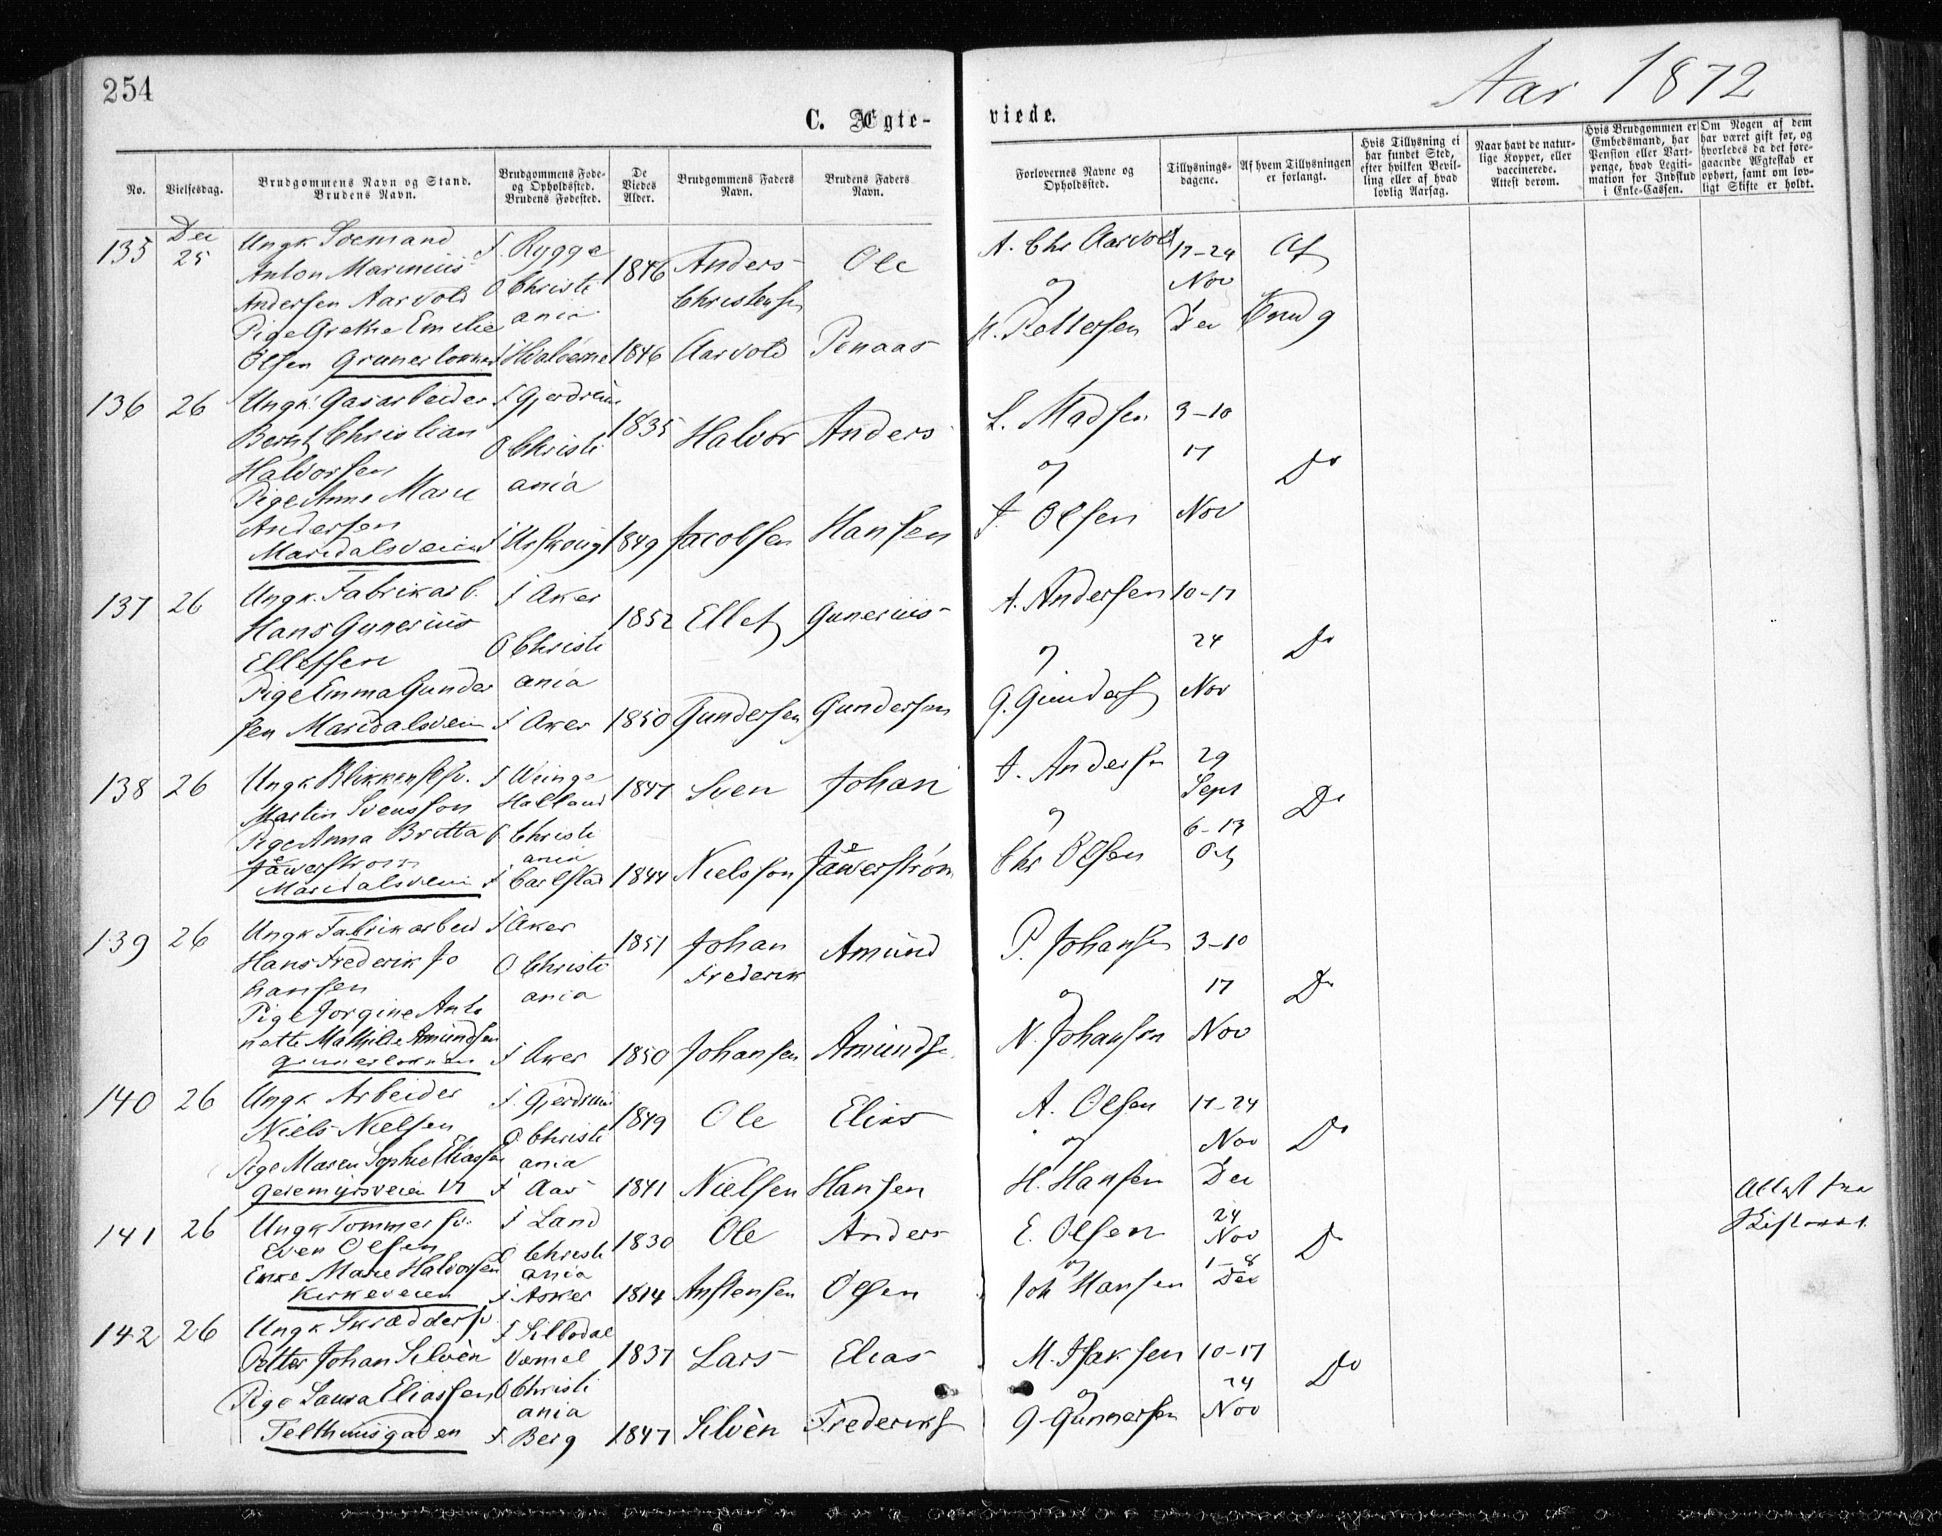 254
Aar 1872
C. Ægte-
viede.
No.
Vielsesdag.
Brudgommens Navn og Stand.
Brudens Navn.
Brudgommens Føde-
og Opholdssted.
Brudens Fødested.
De
Viedes
Alder.
Brudgommens Faders
Navn.
Brudens Faders
Navn.
Forlovernes Navne og
Opholdssted.
Tillysnings-
dagene.
Af hvem Tillysningen
er forlangt.
Hvis Tillysning ei
har fundet Sted,
efter hvilken Bevil-
ling eller af hvad
lovlig Aarsag.
Naar havt de natur-
lige Kopper, eller
vaccinerede.
Attest derom.
Hvis Brudgommen er
Embedsmand, har
Pension eller Vart-
penge, hvad Legiti-
mation for Indskud
i Enke-Cassen.
Om Nogen af dem
har været gift før, og
hvorledes da det fore-
gaaende Ægteskab er
ophørt, samt om lov-
ligt Skifte er holdt.
135
Dec
25
Ungk Søemand
Anton Marinius
Andersen Aarvold
Pige Grethe Emilie
Olsen Grunerløkken
f. Rygge
O Christi
ania
1846
1846
Anders
Christensen
Aarvold
Ole
Penaas
A. Chr Aarvold
og
Pettersen
17-24
Nov
Dec
Af
136 26
Ungk. Gasarbeider
Bernt Christian
Halvorsen
Pige Anne Marie
Andersen
Maridalsveien
f Gjerdrum
O Christi
ania
f Urskoug
1835
1849
Halvor
Jacobsen
Anders
Hansen
L. Madsen
og
J. Olsen
3-10
17
Nov
Do
137 26
Ungk. Fabrikarb.
Hans Gunerius
Ellefsen
Pige Emma Gunder
sen Maridalsveien
f Aker
O Christi
ania
f Aker
1852
1850
Ellef
Gundersen
Gunerius
Gundersen
A. Andersen
og
G. Gunders
10-17
24
Nov
Do
138 26
Ungk Blikkensl Sv.
Martin Svensson
Pige Anna Britta
Jäwerström
Maridalsveien
f Weinge
Halland
O Christi
ania
f Carlstad
1847
1844
Sven
Nielsson
Johan
Jäwerstrøm
J. Andersen
og
Chr Olsen
29
Sept
6-13
Oct
Do
139 26
Ungk Fabrikarbeid
Hans Frederik Jo
hansen
Pige Jorgine Anto
nette Mathilde Amundsen
Grunerløkken
f Aker
O Christi
ania
f Aker
1851
1850
Johan
Frederik
Johansen
Amund
Amundse
P. Johansen
og
N. Johansen
3-10
17
Nov
Do
140 26
Ungk Arbeider
Niels Nielsen
Pige Maren Sophie Eliassen
Geitemyrsveien 17
f. Gjerdrum
O Christi
ania
f Aas
1849
1841
Ole
Nielsen
Elias
Hansen
A. Olsen
og
H. Hansen
17-24
Nov
Dec
Do
141 26
Ungk Tømmer Sv.
Even Olsen
Enke Marie Halvorsen
Kirkeveien
f Land
O Christi
ania
f Asker
1830
1814
Ole
Anstensen
Anders
Olsen
E. Olsen
og
Joh Hansen
24
Nov
1-8
Dec
Do
Attest fra
Skifteret.
142 26
Ungk Skrædder Sv
Petter Johan Silvèn
Pige Laura Eliassen
Telthuusgaden
f Silbodal
Vermel
O Christi
ania
f. Berg
1837
1847
Lars
Silvèn
Elias
Frederiks
M. Isaksen
og
G. Gunnersen
10-17
24
Nov
Do